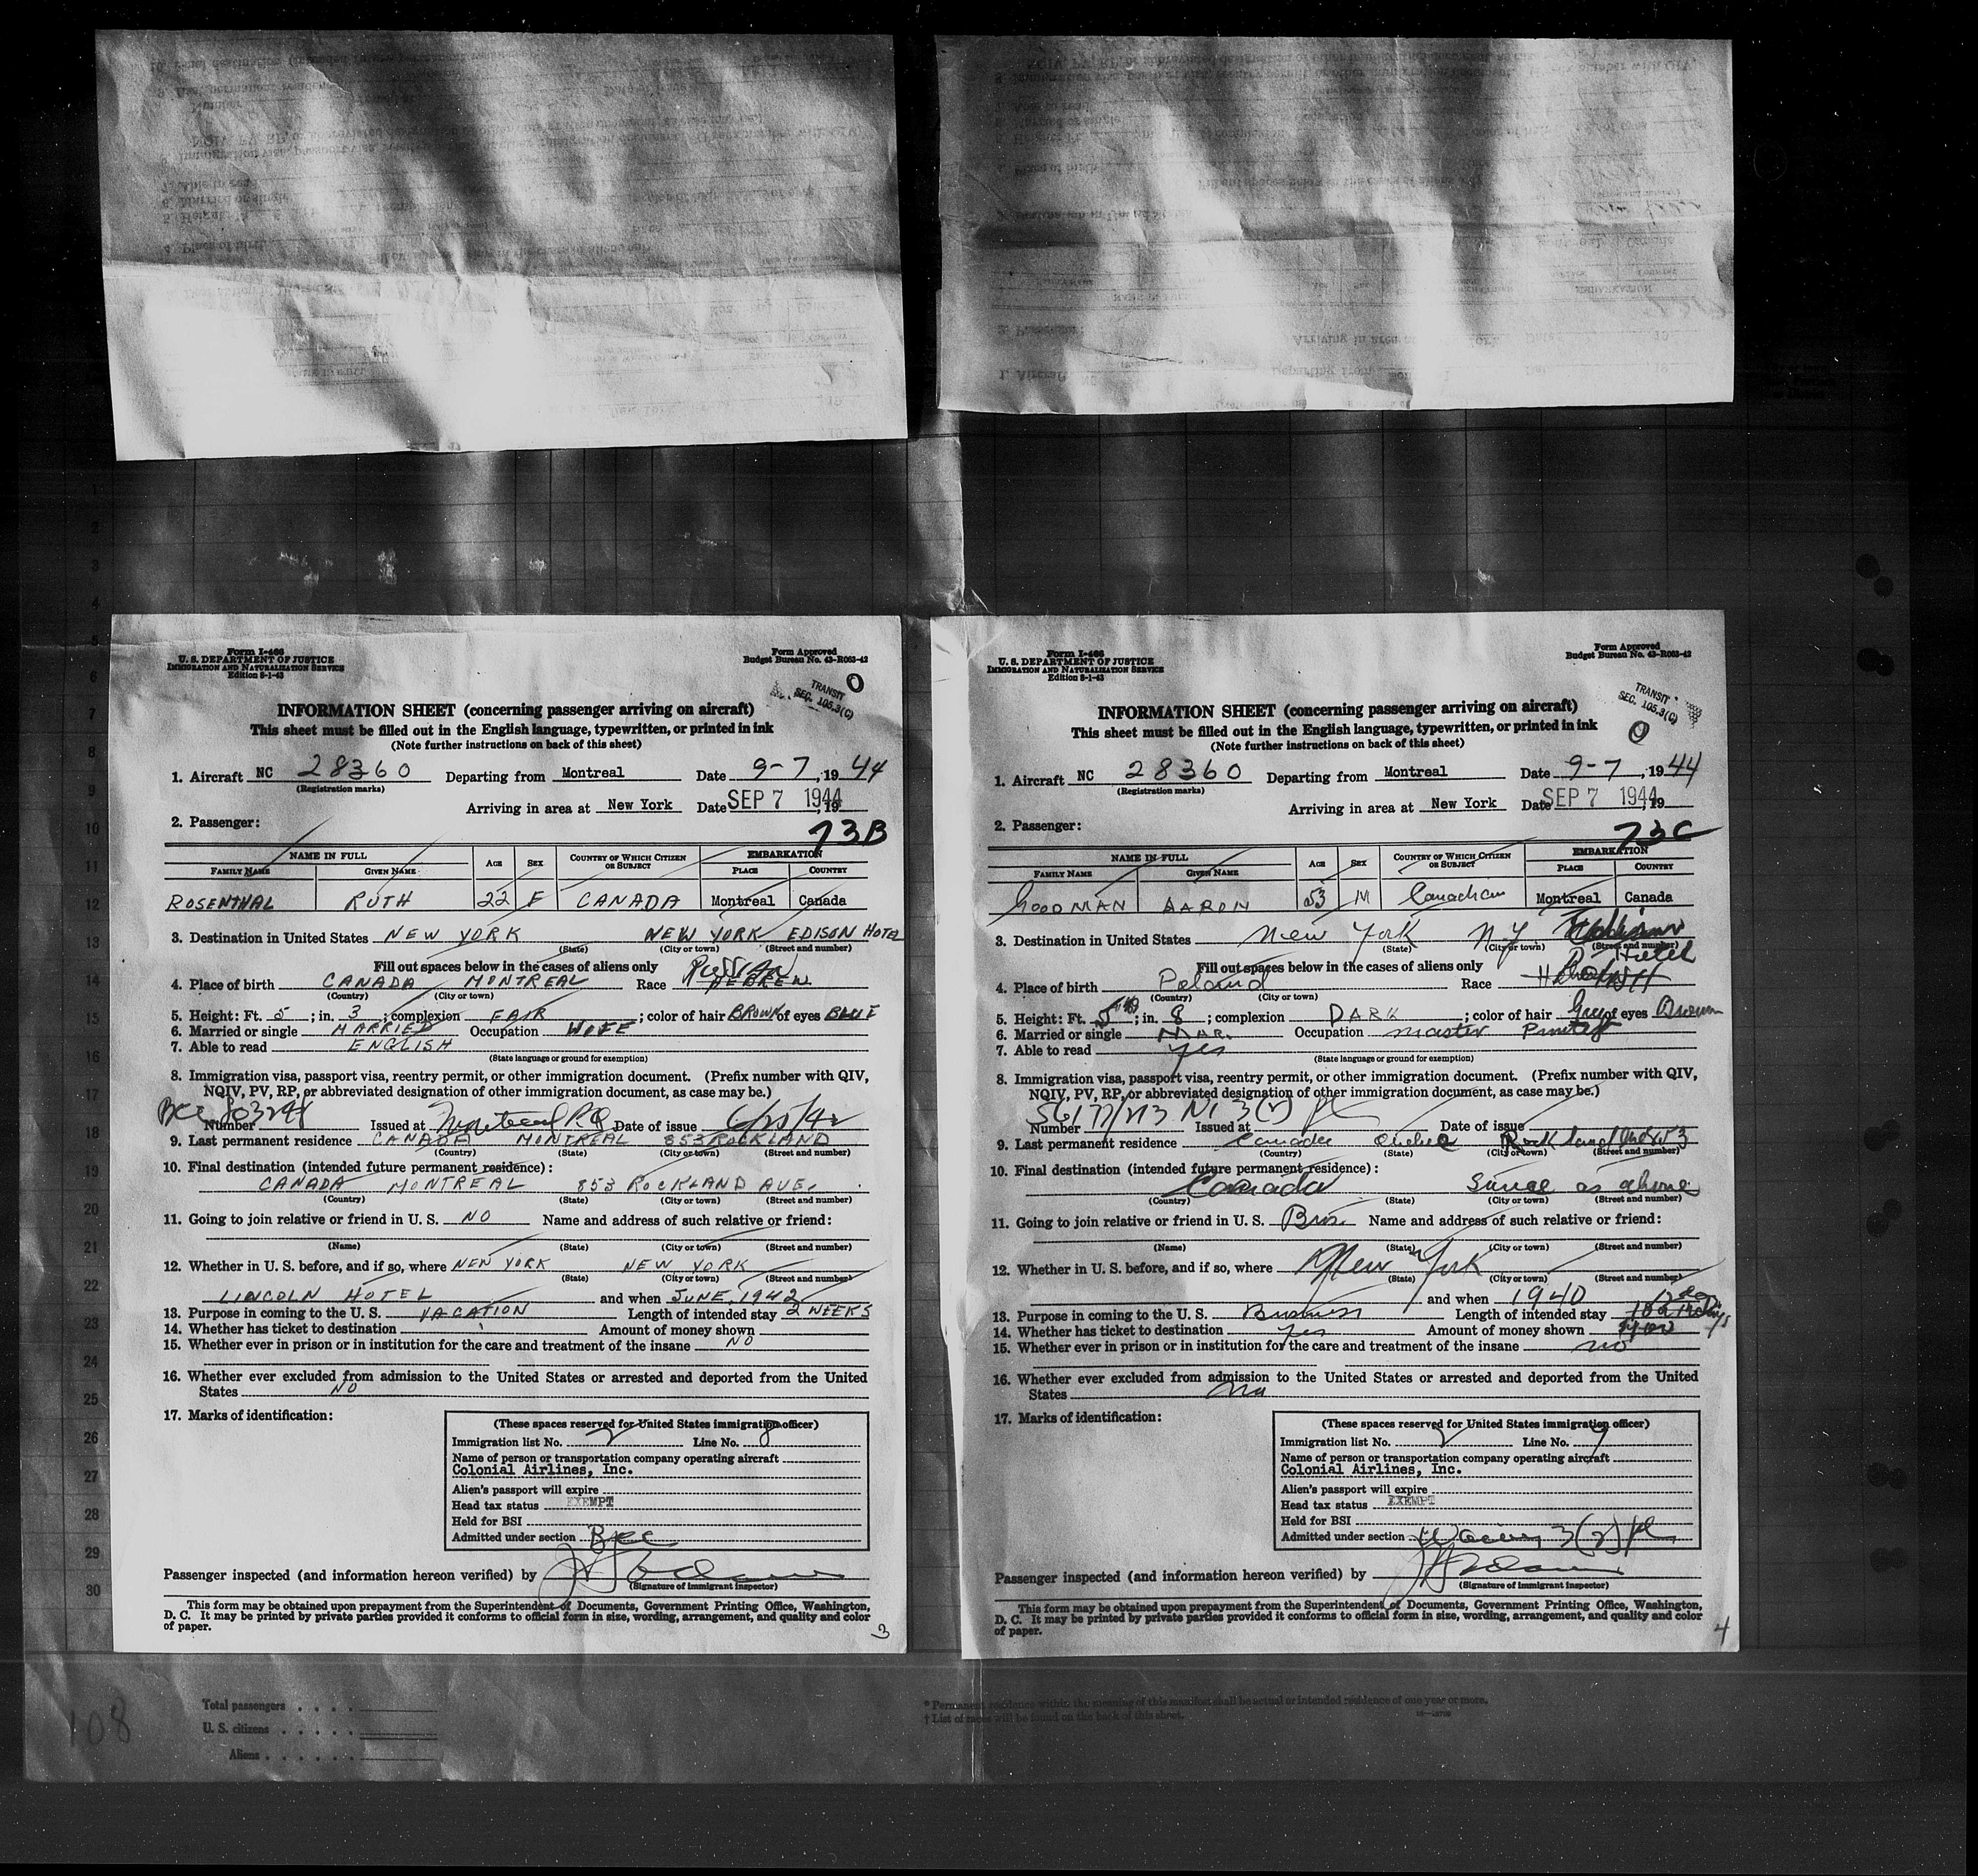 Form I-466
U. S. DEPARTMENT OF JUSTICE
IMMIGRATION AND NATURALIZATION SERVICE
Edition 5-1-43
Form Approved
Budget Bureau No. 43-R063-42
TRANSIT
SEC. 105.3(C)
0
INFORMATION SHEET (concerning passenger arriving on aircraft)
This sheet must be filled out in the English language, typewritten, or printed in ink
(Note further instructions on back of this sheet)
1. Aircraft NC 28360 Departing from Montreal Date 9-7, 1944
(Registration marks)
Arriving in area at New York Date SEP 7 1944, 19
2. Passenger: 73B
NAME IN FULL AGE SEX COUNTRY OF WHICH CITIZEN OR SUBJECT EMBARKATION
FAMILY NAME GIVEN NAME PLACE COUNTRY
ROSENTHAL RUTH 22 F CANADA Montreal Canada
3. Destination in United States NEW YORK NEW YORK EDISON HOTEL
(State) (City or town) (Street and number)
Fill out spaces below in the cases of aliens only
4. Place of birth CANADA MONTREAL Race HEBREW
(Country) (City or town)
5. Height: Ft. 5; in. 3; complexion FAIR; color of hair BROWN of eyes BLUE
6. Married or single MARRIED Occupation WIFE
7. Able to read ENGLISH
(State language or ground for exemption)
8. Immigration visa, passport visa, reentry permit, or other immigration document. (Prefix number with QIV,
NQIV, PV, RP, or abbreviated designation of other immigration document, as case may be.)
Number Issued at Montreal P.Q. Date of issue 6/25/42
9. Last permanent residence CANADA MONTREAL 853 ROCKLAND
(Country) (State) (City or town) (Street and number)
10. Final destination (intended future permanent residence):
CANADA MONTREAL 853 ROCKLAND AVE.
(Country) (State) (City or town) (Street and number)
11. Going to join relative or friend in U. S. NO Name and address of such relative or friend:
(Name) (State) (City or town) (Street and number)
12. Whether in U. S. before, and if so, where NEW YORK NEW YORK
(State) (City or town) (Street and number)
LINCOLN HOTEL and when JUNE, 1942
13. Purpose in coming to the U. S. VACATION Length of intended stay 2 WEEKS
14. Whether has ticket to destination Amount of money shown
15. Whether ever in prison or in institution for the care and treatment of the insane NO
16. Whether ever excluded from admission to the United States or arrested and deported from the United
States NO
17. Marks of identification:
(These spaces reserved for United States immigration officer)
Immigration list No. 2 Line No. 8
Name of person or transportation company operating aircraft
Colonial Airlines, Inc.
Alien's passport will expire
Head tax status EXEMPT
Held for BSI
Admitted under section Bcc
Passenger inspected (and information hereon verified) by
(Signature of immigrant inspector)
This form may be obtained upon prepayment from the Superintendent of Documents, Government Printing Office, Washington,
D. C. It may be printed by private parties provided it conforms to official form in size, wording, arrangement, and quality and color
of paper.
3
Form I-466
U. S. DEPARTMENT OF JUSTICE
IMMIGRATION AND NATURALIZATION SERVICE
Edition 5-1-43
Form Approved
Budget Bureau No. 43-R063-42
TRANSIT
SEC. 105.3(C)
0
INFORMATION SHEET (concerning passenger arriving on aircraft)
This sheet must be filled out in the English language, typewritten, or printed in ink
(Note further instructions on back of this sheet)
1. Aircraft NC 28360 Departing from Montreal Date 9-7, 1944
(Registration marks)
Arriving in area at New York Date SEP 7 1944, 19
2. Passenger: 73C
NAME IN FULL AGE SEX COUNTRY OF WHICH CITIZEN OR SUBJECT EMBARKATION
FAMILY NAME GIVEN NAME PLACE COUNTRY
GOODMAN AARON 53 M Canadian Montreal Canada
3. Destination in United States New York N.Y. Hotel
(State) (City or town) (Street and number)
Fill out spaces below in the cases of aliens only
4. Place of birth Poland Race
(Country) (City or town)
5. Height: Ft. 5; in. 8; complexion DARK; color of hair Grey of eyes Brown
6. Married or single MAR. Occupation master
7. Able to read yes
(State language or ground for exemption)
8. Immigration visa, passport visa, reentry permit, or other immigration document. (Prefix number with QIV,
NQIV, PV, RP, or abbreviated designation of other immigration document, as case may be.)
Number Issued at Date of issue
9. Last permanent residence Canada Quebec
(Country) (State) (City or town) (Street and number)
10. Final destination (intended future permanent residence):
Canada Same as above
(Country) (State) (City or town) (Street and number)
11. Going to join relative or friend in U. S. Bus. Name and address of such relative or friend:
(Name) (State) (City or town) (Street and number)
12. Whether in U. S. before, and if so, where New York
(State) (City or town) (Street and number)
and when 1940
13. Purpose in coming to the U. S. Business Length of intended stay
14. Whether has ticket to destination yes Amount of money shown
15. Whether ever in prison or in institution for the care and treatment of the insane no
16. Whether ever excluded from admission to the United States or arrested and deported from the United
States No
17. Marks of identification:
(These spaces reserved for United States immigration officer)
Immigration list No. 2 Line No. 9
Name of person or transportation company operating aircraft
Colonial Airlines, Inc.
Alien's passport will expire
Head tax status EXEMPT
Held for BSI
Admitted under section
Passenger inspected (and information hereon verified) by
(Signature of immigrant inspector)
This form may be obtained upon prepayment from the Superintendent of Documents, Government Printing Office, Washington,
D. C. It may be printed by private parties provided it conforms to official form in size, wording, arrangement, and quality and color
of paper.
4
108
Total passengers
U. S. citizens
Aliens
* Permanent residence within the meaning of this manifest shall be actual or intended residence of one year or more.
† List of races will be found on the back of this sheet.